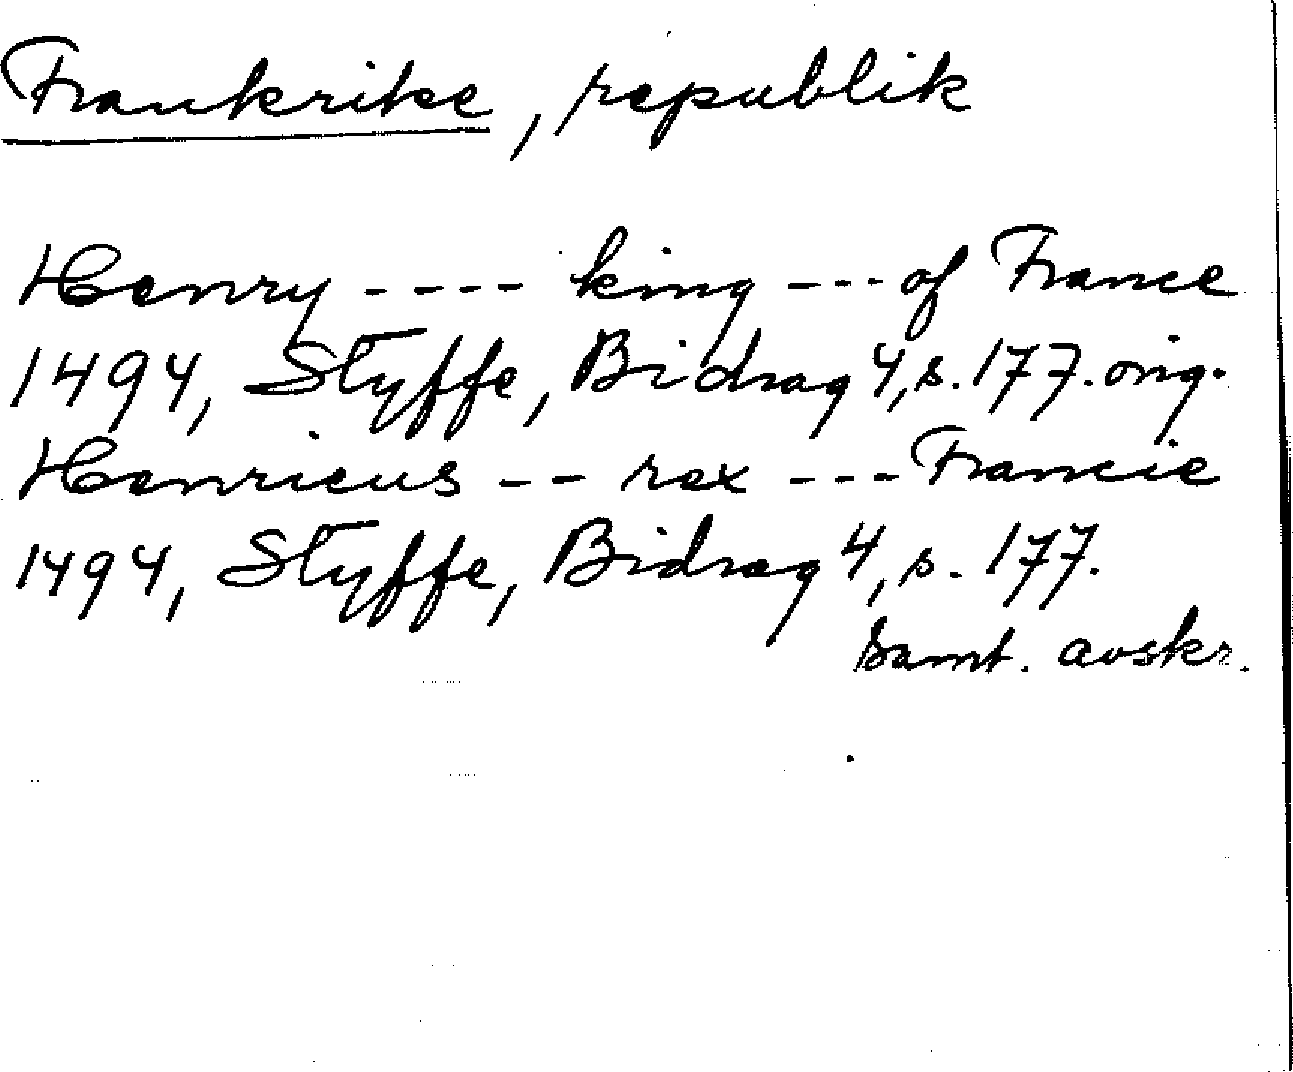 Frankrike, republik
Henry ---- king --- of France
1494, Styffe, Bidrag 4, s. 177. orig.
Henricus -- rex --- Francie
1494, Styffe, Bidrag 4, s. 177.
samt. avskr.